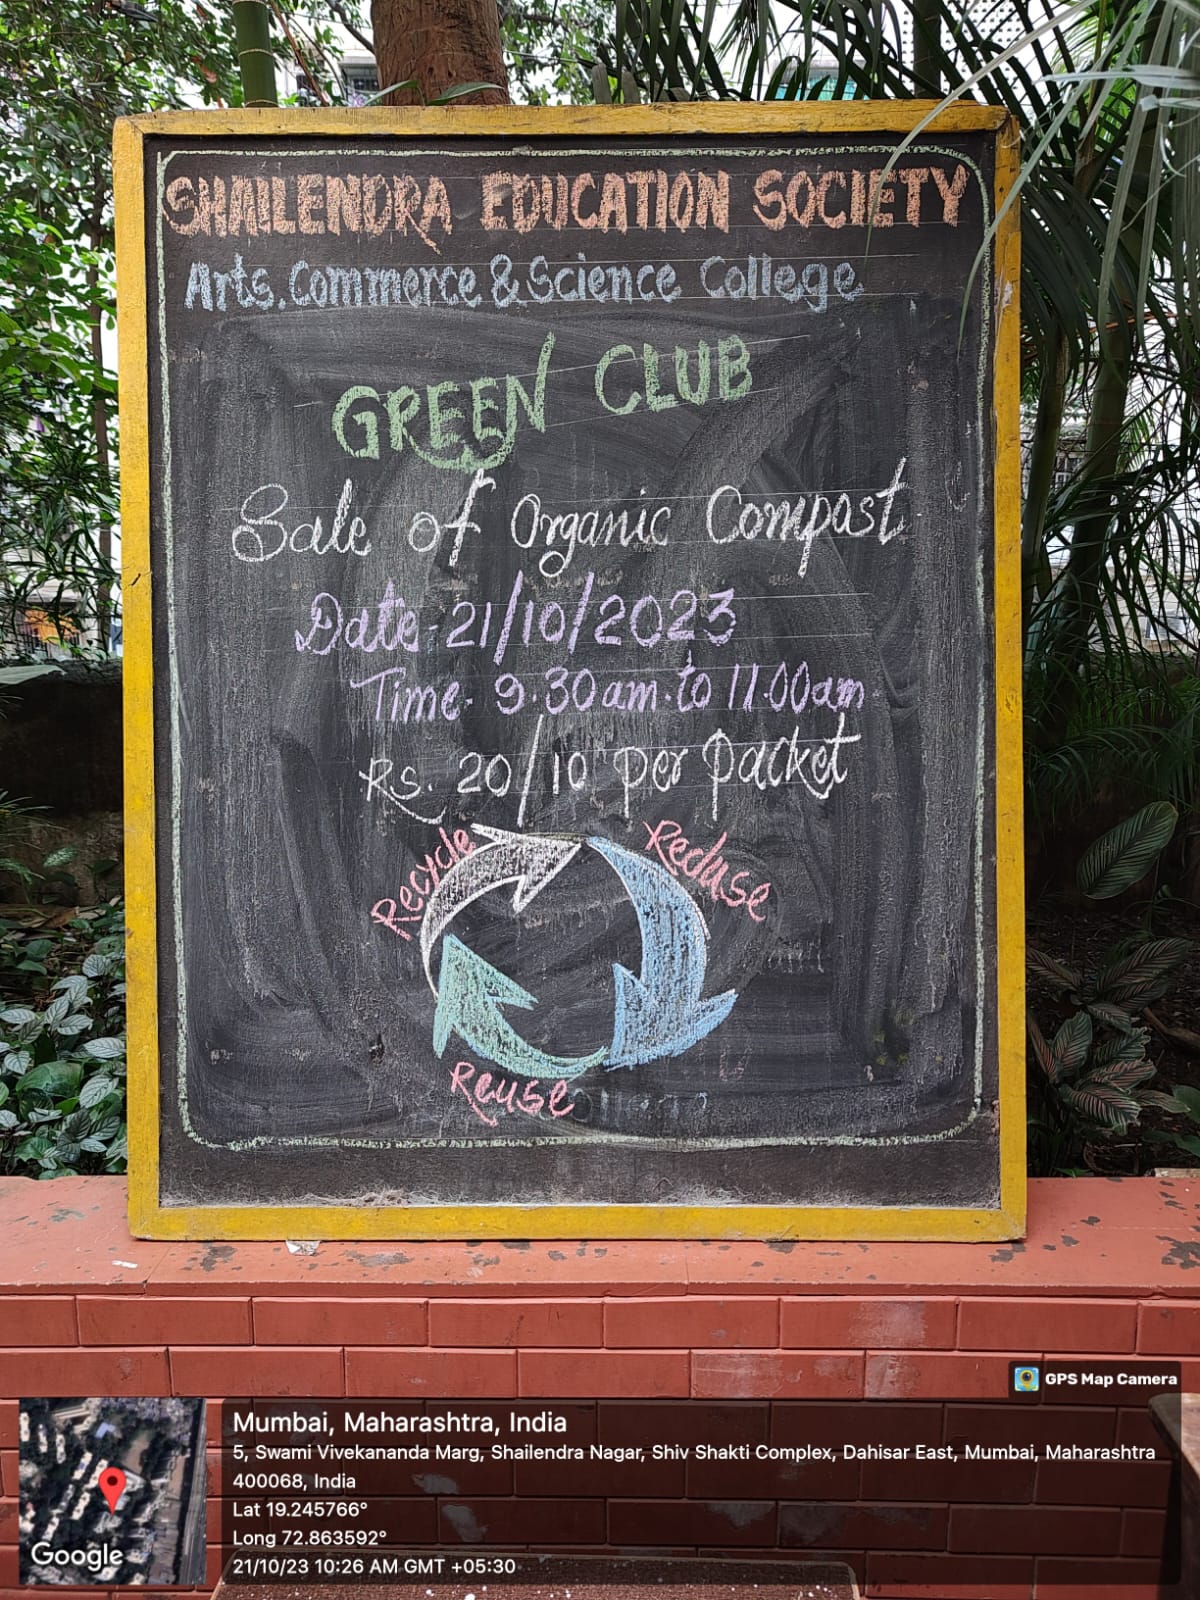 SHAILENDRA EDUCATION SOCIETY
Arts, Commerce & Science College
GREEN CLUB
Sale of Organic Compost
Date- 21/10/2023
Time- 9.30am. to 11.00am.
Rs. 20/10 per packet
Recycle
Reduse
Reuse
GPS Map Camera
Mumbai, Maharashtra, India
5, Swami Vivekananda Marg, Shailendra Nagar, Shiv Shakti Complex, Dahisar East, Mumbai, Maharashtra
400068, India
Lat 19.245766°
Long 72.863592°
21/10/23 10:26 AM GMT +05:30
Google